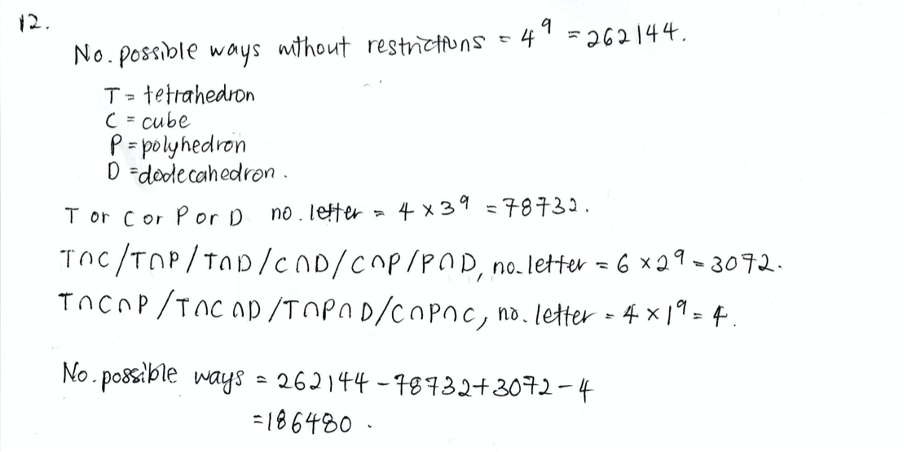 12.
No. possible ways without restrictions = 4⁹ = 262144.
T = tetrahedron
C = cube
P = polyhedron
D = dodecahedron.
T or C or P or D no. letter = 4 × 3⁹ = 78732.
T∩C/T∩P/T∩D/C∩D/C∩P/P∩D, no. letter = 6 × 2⁹ = 3072.
T∩C∩P/T∩C∩D/T∩P∩D/C∩P∩C, no. letter = 4 × 1⁹ = 4.
No. possible ways = 262144 - 78732 + 3072 - 4
= 186480.